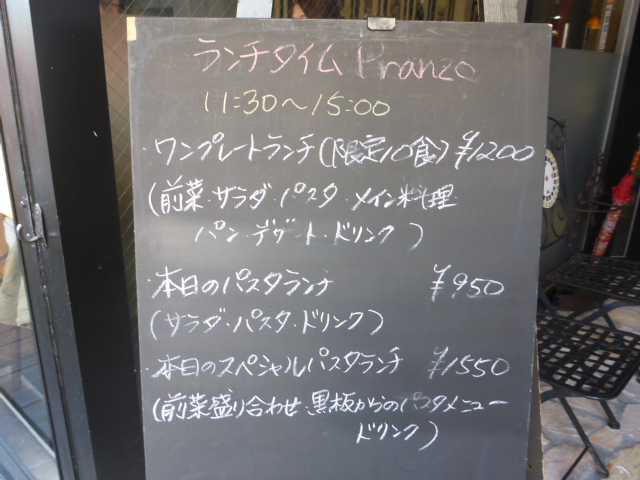 ランチタイム Pranzo
11:30～15:00
・ワンプレートランチ(限定10食)¥1200
(前菜・サラダ・パスタ・メイン料理・
パン・デザート・ドリンク)
・本日のパスタランチ ¥950
(サラダ・パスタ・ドリンク)
・本日のスペシャルパスタランチ ¥1550
(前菜盛り合わせ・黒板からのパスタメニュー
ドリンク)